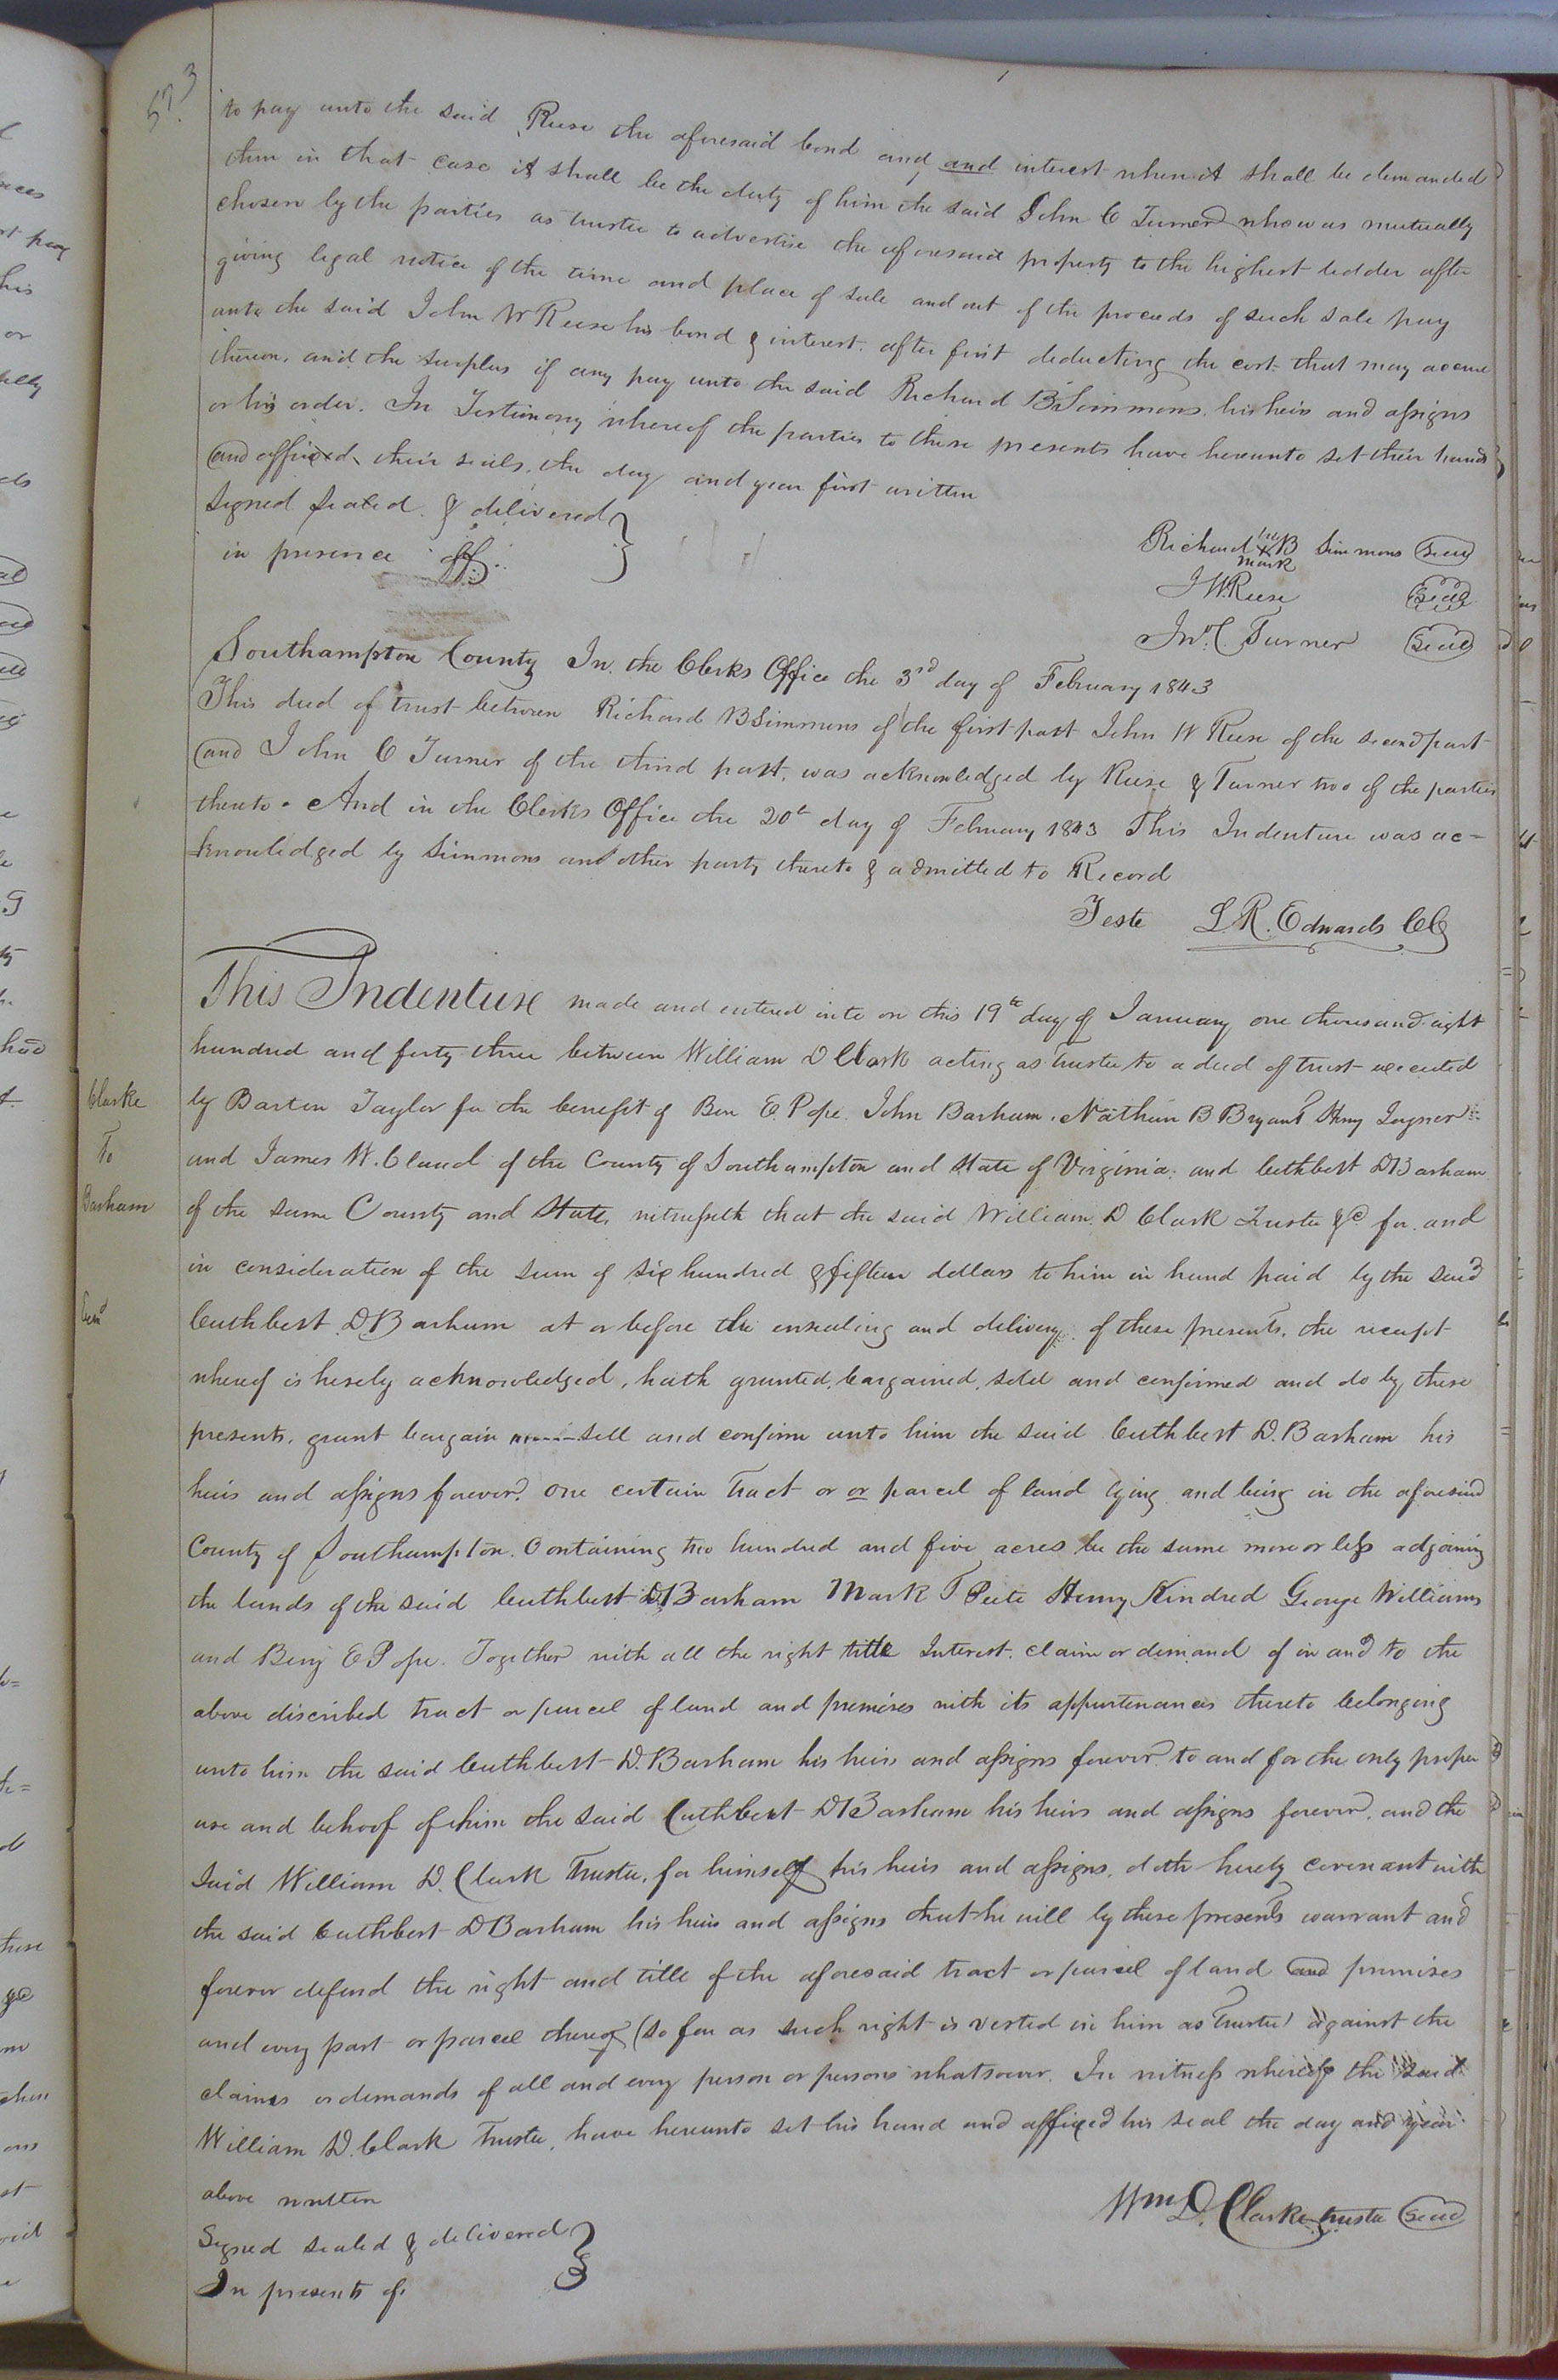 573
to pay unto the said Reese the aforesaid bond and and interest when it shall be demanded
then in that case it shall be the duty of him the said John C Turner who was mutually
chosen by the parties as trustee to advertise the aforesaid property to the highest bidder after
giving legal notice of the time and place of sale and out of the proceeds of such sale pay
unto the said John W Reese his bond & interest. after first deducting the cost that may accrue
thereon. and the surplus if any pay unto the said Richard B Simmons, his heirs and assigns
or his order. In Testimony whereof the parties to these presents have hereunto set their hands
and affixed their seals, the day and year first written
Signed sealed & delivered
in presence of
Richard his X mark B Simmons Seal
J W. Reese Seal
Jno. C. Turner Seal
Southampton County In the Clerks Office the 3rd day of February 1843
This deed of trust between Richard B Simmons of the first part John W Reese of the second part
and John C Turner of the third part, was acknowledged by Reese & Turner two of the parties
thereto. And in the Clerks Office the 20th day of February 1843 This Indenture was ac=
knowledged by Simmons another party thereto & admitted to Record
Teste L. R. Edwards CC
This Indenture made and entered into on this 19th day of January one thousand eight
hundred and forty three between William D Clark acting as Trustee to a deed of trust executed
Clarke
To
Barham
by Barton Taylor for the benefit of Ben E Pope. John Barham. Nathan B Bryant Henry Joyner
and James W. Claud of the County of Southampton and State of Virginia. and Cuthbert D Barham
of the same County and State, witnesseth that the said William D Clark Trustee &c for and
in consideration of the sum of six hundred & fifteen dollars to him in hand paid by the said
Cuthbert D Barham at or before the ensealing and delivery of these presents, the receipt
whereof is hereby acknowledged, hath granted, bargained, sold and confirmed and do by these
presents, grant bargain sell and confirm unto him the said Cuthbert D. Barham his
heirs and assigns forever. one certain Tract or or parcel of land lying and being in the aforesaid
County of Southampton. Containing two hundred and five acres be the same more or less adjoining
the lands of the said Cuthbert D. Barham Mark T Peete Henry Kindred George Williams
and Benj E Pope. Together with all the right title Interest. claim or demand of in and to the
above discribed tract or parcel of land and premises with its appurtenances thereto belonging
unto him the said Cuthbert D. Barham his heirs and assigns forever to and for the only proper
use and behoof of him the said Cuthbert D Barham his heirs and assigns forever. and the
said William D. Clark Trustee, for himself his heirs and assigns, doth hereby covenant with
the said Cuthbert D Barham his heirs and assigns that he will by these presents warrant and
forever defend the right and title of the aforesaid tract or parcel of land and premises
and every part or parcel thereof (so far as such right is vested in him as Trustee) against the
claims or demands of all and every person or persons whatsoever. In witness whereof the said
William D. Clark Trustee, have hereunto set his hand and affixed his seal the day and year
above written
Wm D. Clarke trustee Seal
Signed sealed & delivered
In presents of.